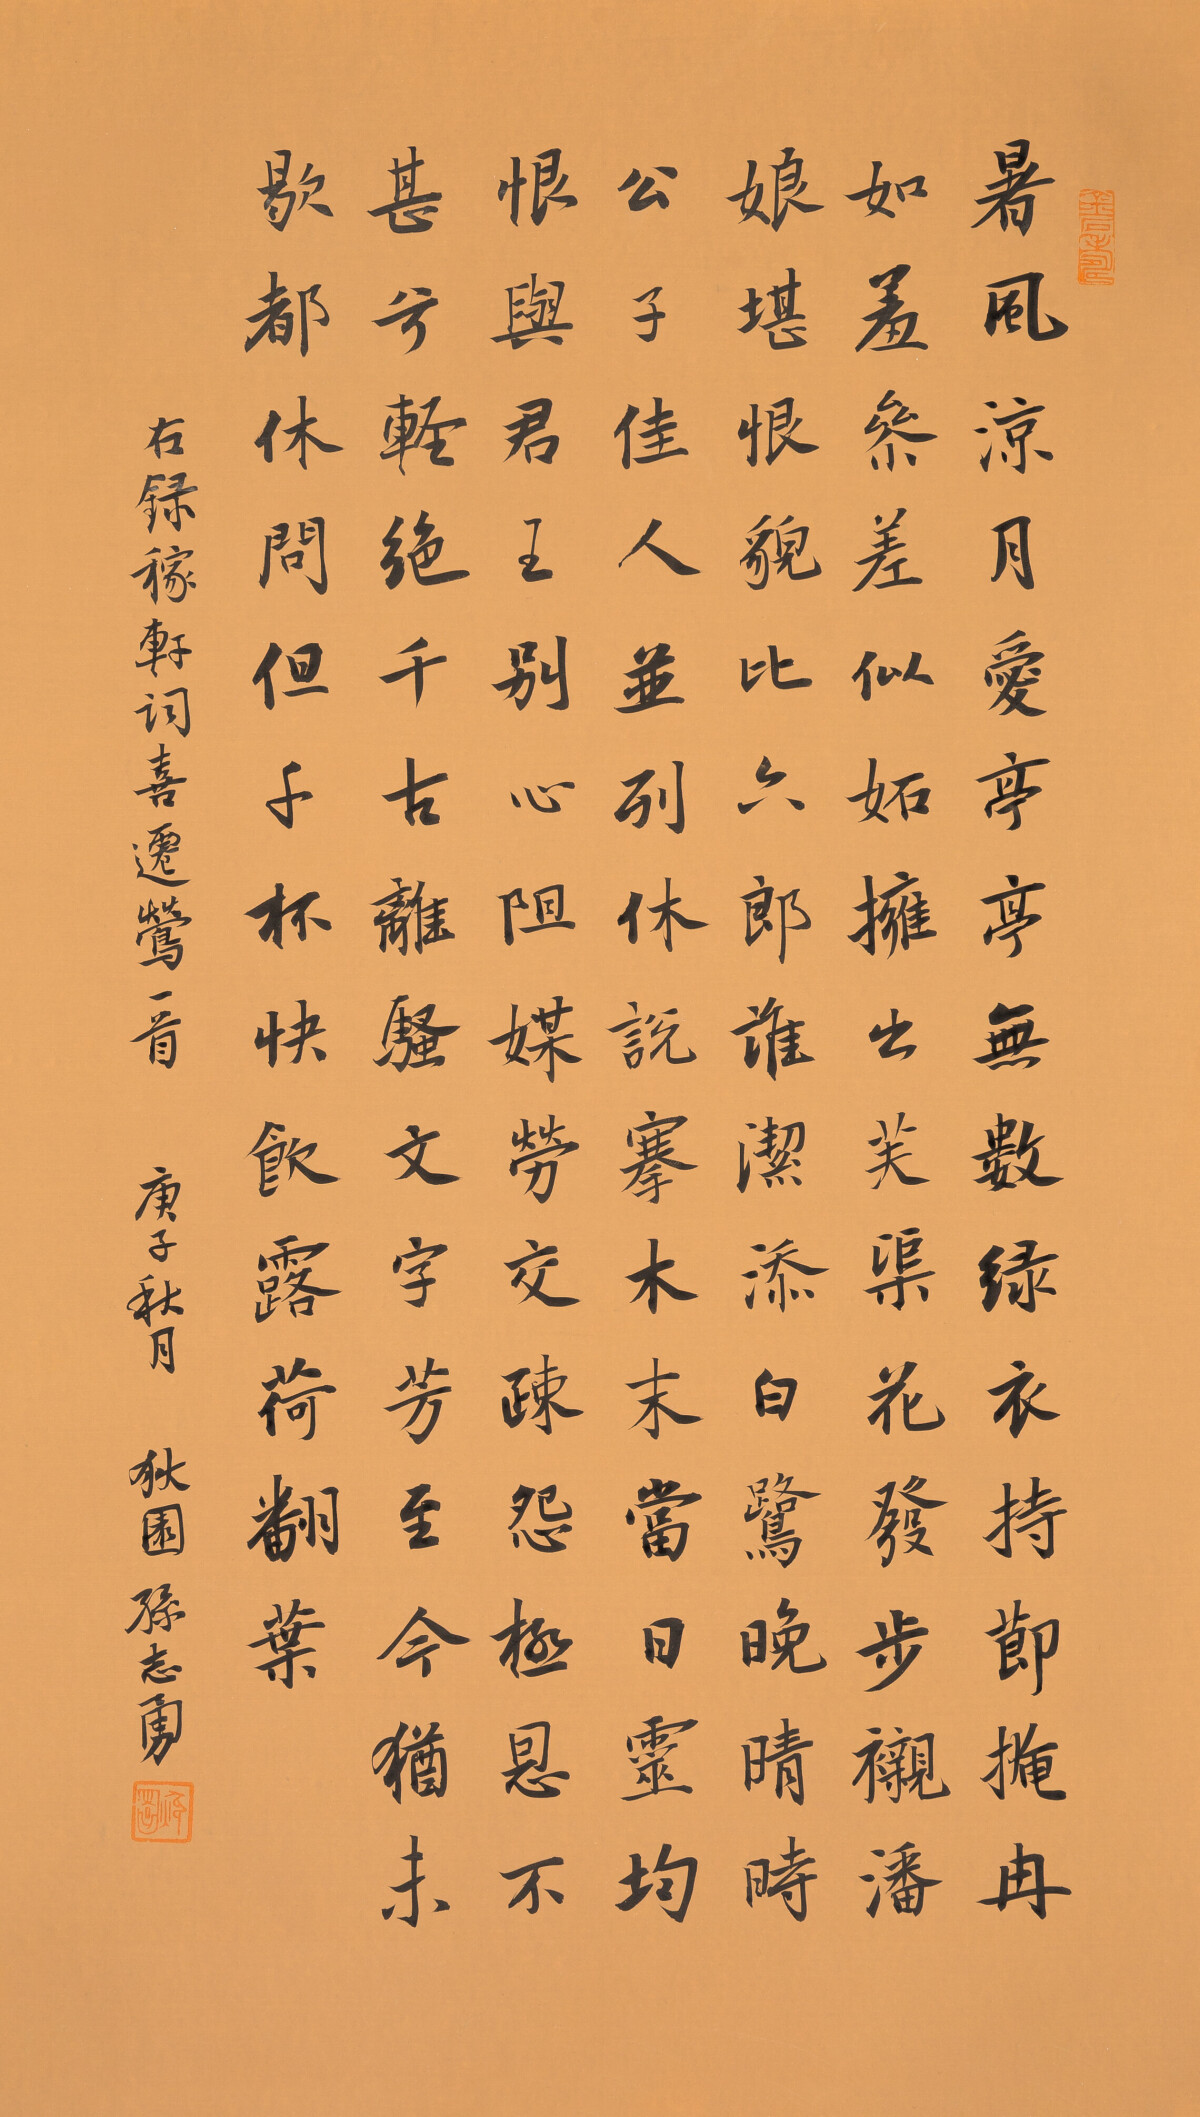 暑風涼月愛亭亭無數绿衣持節掩冉
如羞參差似妬擁出芙渠花發步襯潘
娘堪恨貌比六郎誰潔添白鷺晚晴時
公子佳人並列休説搴木末當日靈均
恨與君王别心阻媒勞交疎怨極恩不
甚兮軽绝千古離騷文字芳至今猶未
歇都休問但千杯快飲露荷翻葉
右録稼軒詞喜遷鶯一首 庚子秋月 狄園孫志勇